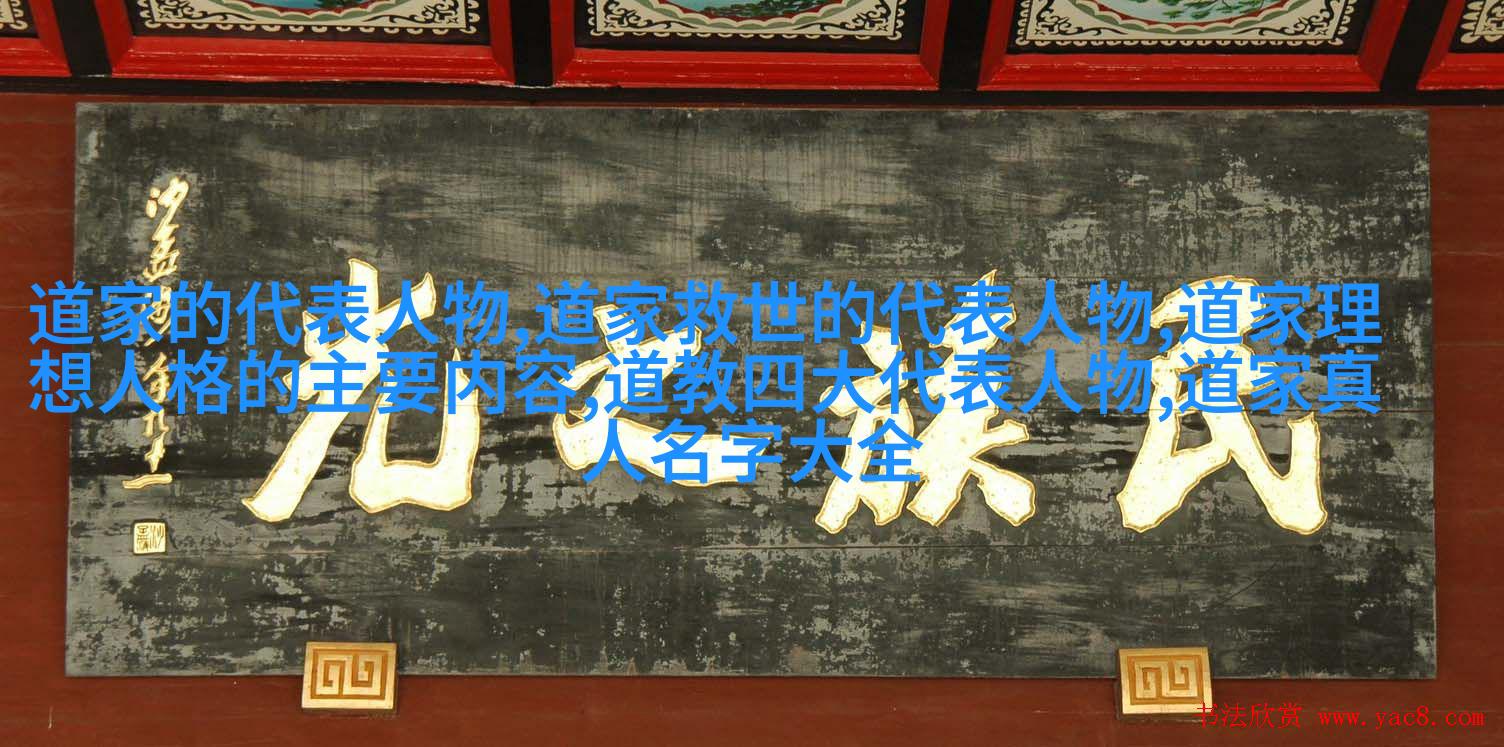 道家的代表人物,道家救世的代表人物,道家理
想人格的主要内容,道教四大代表人物,道家真
人名字大全
民族之光
沙孟海 八年九十一
书法欣赏 www.yac8.com